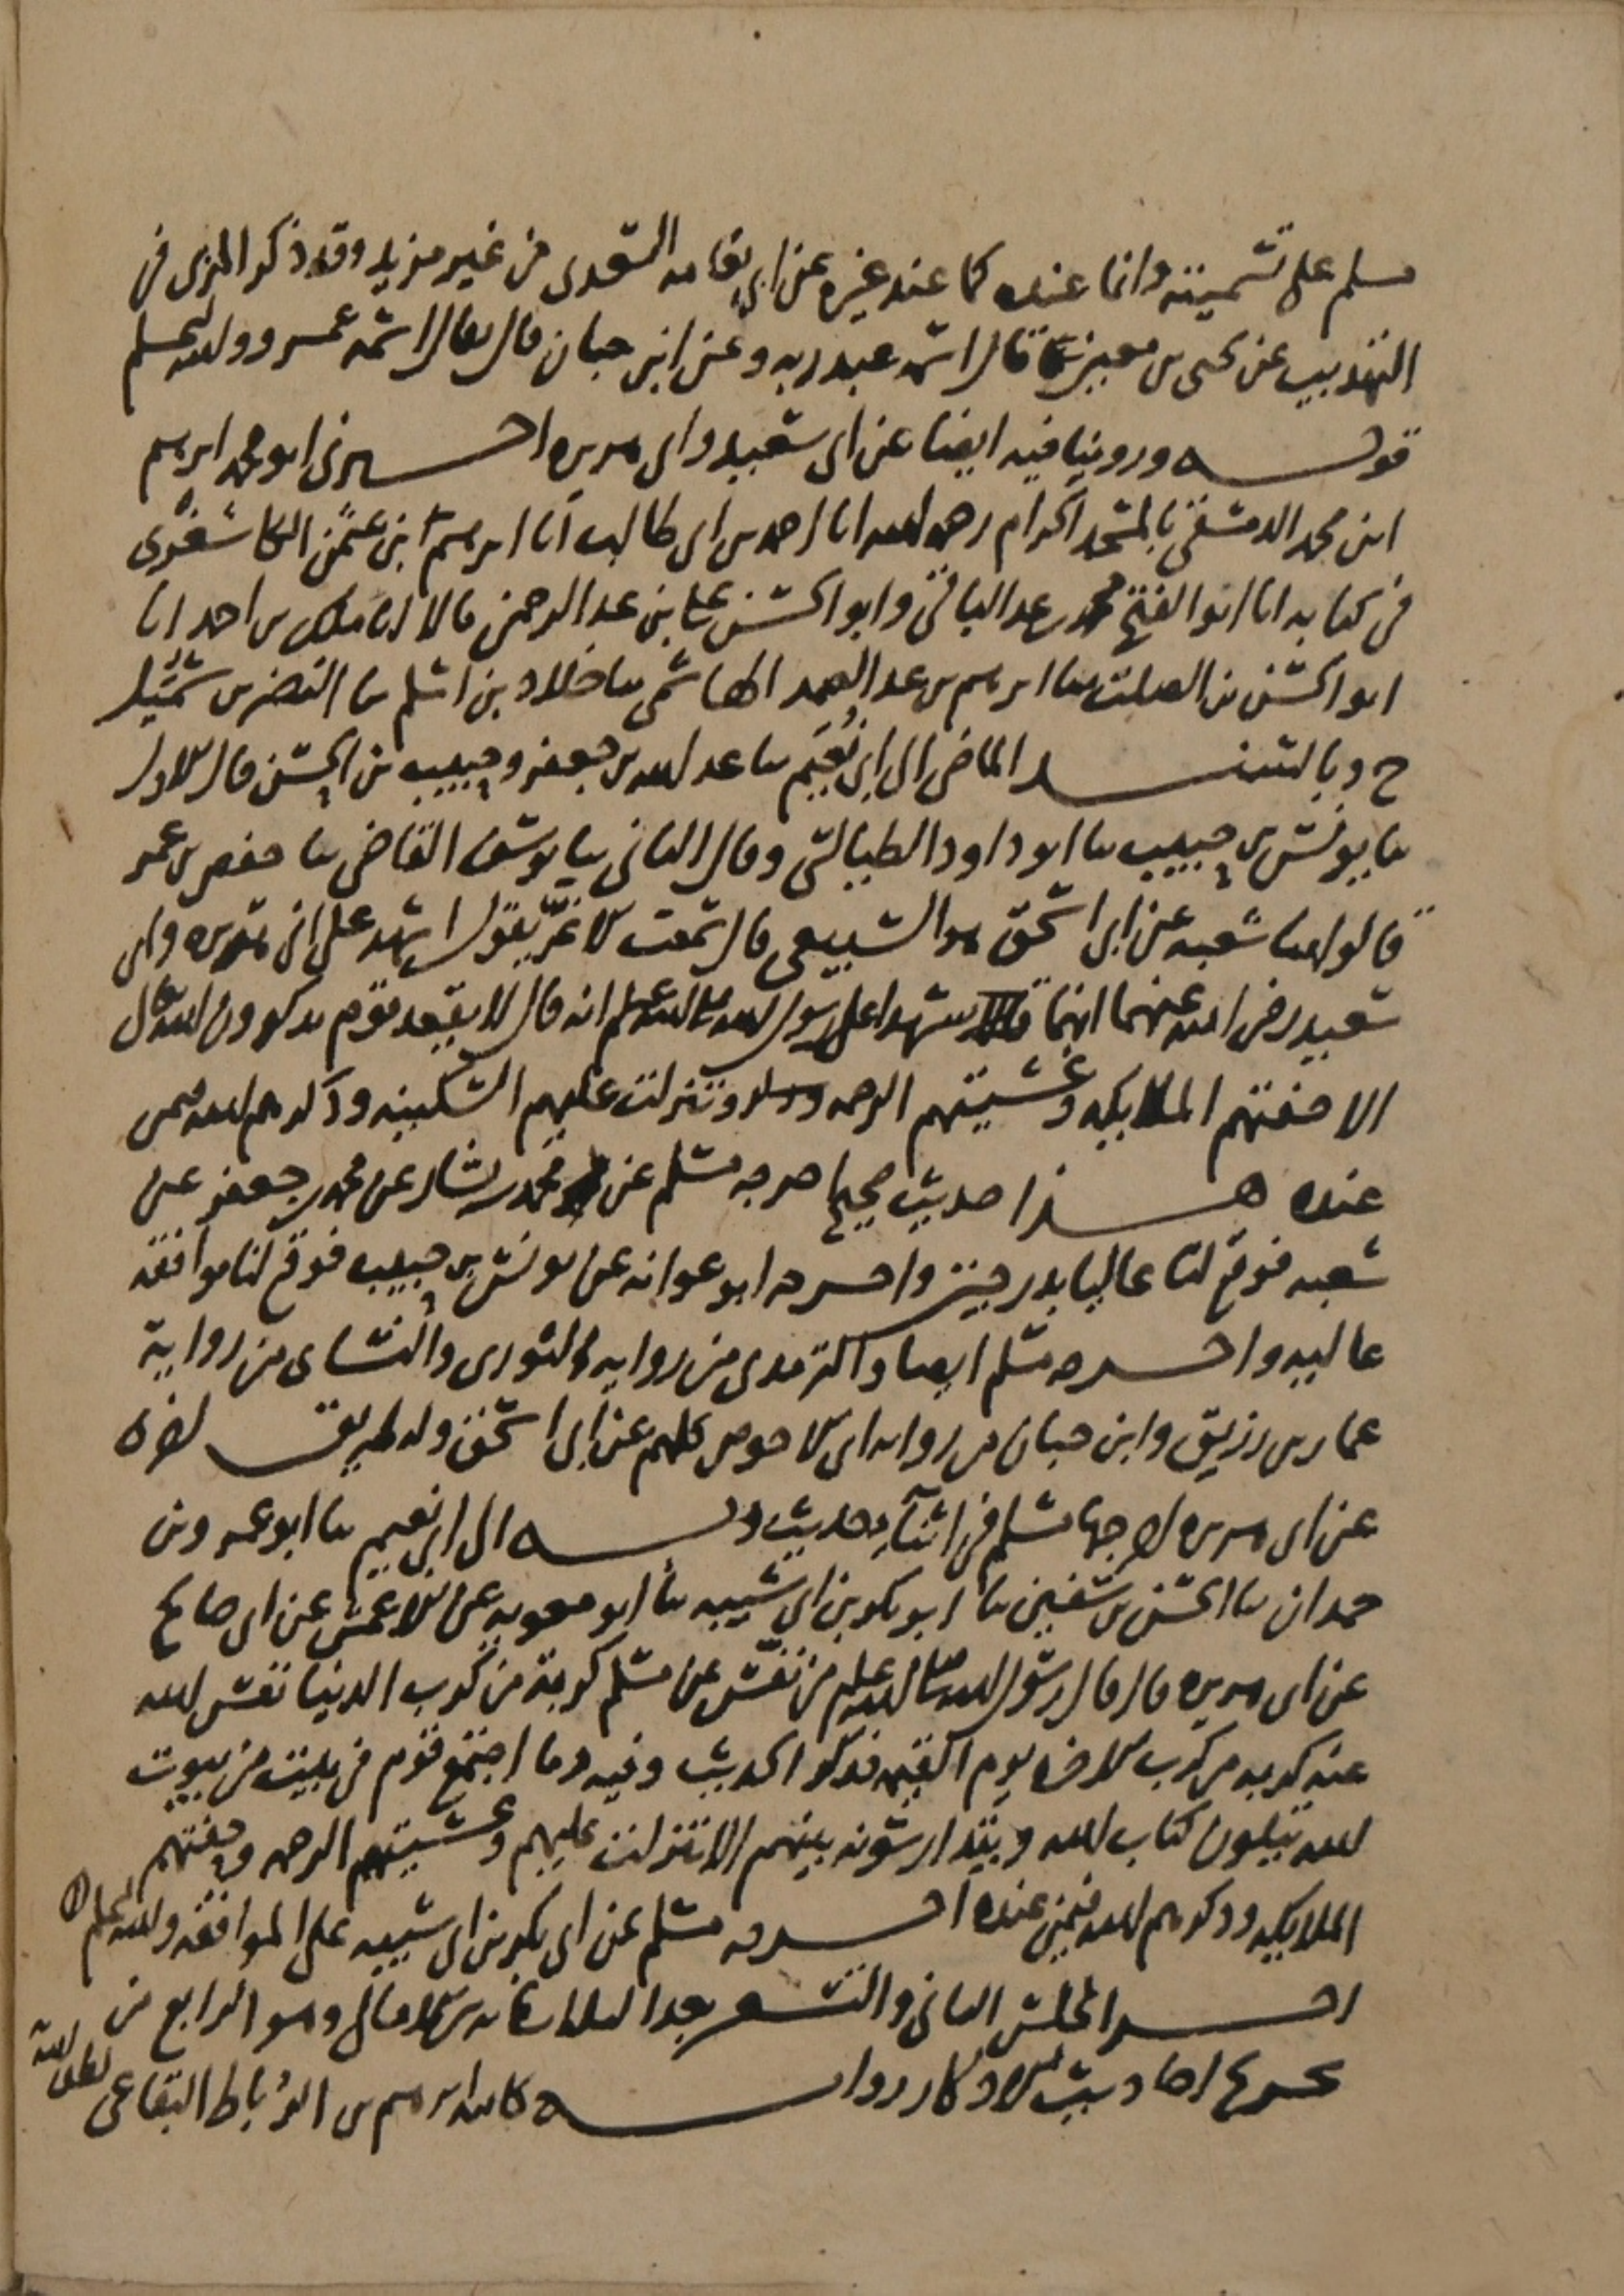 مسلم على تسميته وانما عنده كما عند غيره عن ابي نعامه السعدي من غير مزيد وقد ذكر المزي في
التهذيب عن يحيى بن معين قال اسمه عبد ربه وعن ابن حبان قال يقال اسمه عمرو والله اعلم
قوله وروينا فيه ايضا عن ابي سعيد وابي هريره اخبرني ابو محمد ابرهيم
ابن محمد الدمشقي بالمسجد الحرام رحمه الله انا احمد بن ابي طالب انا ابرهيم بن عثمن الكاشغري
في كتابه انا ابو الفتح محمد بن عبد الباقي وابو الحسن علي بن عبد الرحمن قالا انا ملك بن احمد انا
ابو الحسن بن الصلت ثنا ابرهيم بن عبد الصمد الهاشمي ثنا خلاد بن اسلم ثنا النضر بن شميل
ح وبالسند الماضي الى ابي نعيم ثنا عبد الله بن جعفر وحبيب بن الحسن قال الاول
ثنا يونس بن حبيب ثنا ابو داود الطيالسي وقال الثاني ثنا يوسف القاضي ثنا حفص بن عمر
قالوا ثنا شعبه عن ابي اسحق هو السبيعي قال سمعت الاغر يقول اشهد على ابي هريره وابي
سعيد رضي الله عنهما انهما شهدا على رسول الله صلى الله عليه وسلم انه قال لا يقعد قوم يذكرون الله تعالى
الا حفتهم الملايكه وغشيتهم الرحمه وتنزلت عليهم السكينه وذكرهم الله فيمن
عنده هذا حديث صحيح اخرجه مسلم عن محمد بن بشار عن محمد بن جعفر عن
شعبه فوقع لنا عاليا بدرجتين واخرجه ابو عوانه عن يونس بن حبيب فوقع لنا موافقه
عاليه واخرجه مسلم ايضا والترمذي من روايه الثوري والنساي من رواية
عمار بن رزيق وابن حبان من روايه ابي الاحوص كلهم عن ابي اسحق وله طريق اخرى
عن ابي هريره اخرجها مسلم في اثناء حديث وبه الى ابي نعيم ثنا ابو عمرو بن
حمدان ثنا الحسن بن سفين ثنا ابو بكر بن ابي شيبه ثنا ابو معويه عن الاعمش عن ابي صالح
عن ابي هريره قال قال رسول الله صلى الله عليه وسلم من نفس عن مسلم كربة من كرب الدنيا نفس الله
عنه كربه من كرب الاخره يوم القيمه فذكر الحديث وفيه وما اجتمع قوم في بيت من بيوت
الله يتلون كتاب الله ويتدارسونه بينهم الا تنزلت عليهم وغشيتهم الرحمه وحفتهم
الملايكه وذكرهم الله فيمن عنده اخرجه مسلم عن ابي بكر بن ابي شيبه على الموافقه والله اعلم
اخر المجلس الثاني والتسعين بعد الثلاثمائه من الامالي وهو الرابع من
تخريج احاديث الاذكار روايه كاتبه ابرهيم بن الرباط البقاعي لطف الله